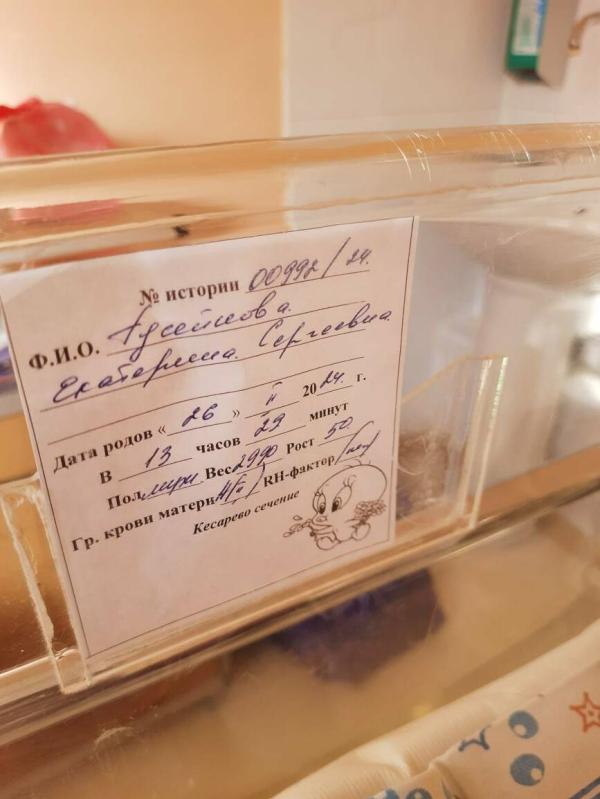 № истории 00992/24.
Ф.И.О. Гусейнова
Екатерина Сергеевна
Дата родов « 26 » II 2024. г.
В 13 часов 29 минут
Пол муж. Вес 2990 Рост 50
Гр. крови матери RH-фактор
Кесарево сечение